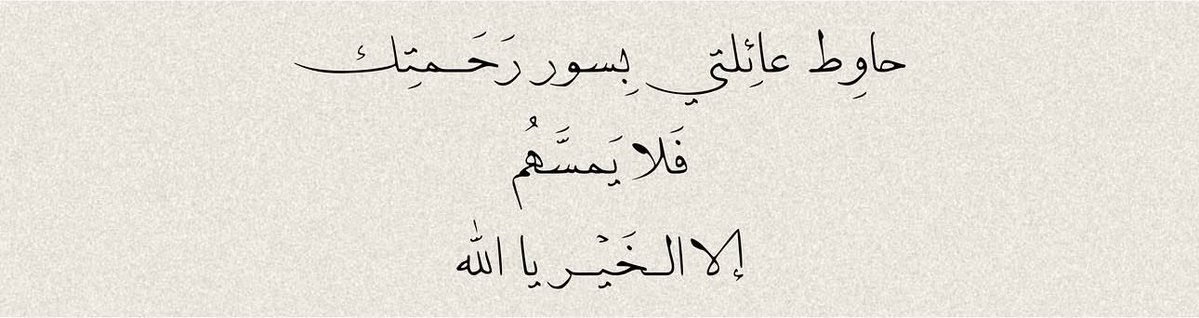 حاوِط عائِلتي بِسور رَحَمتِك
فَلا يَمسَّهُم
إلا الخَيْر يا الله